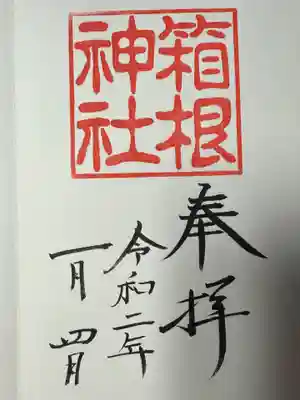 箱根
神社
奉拝
令和二年
一月四日